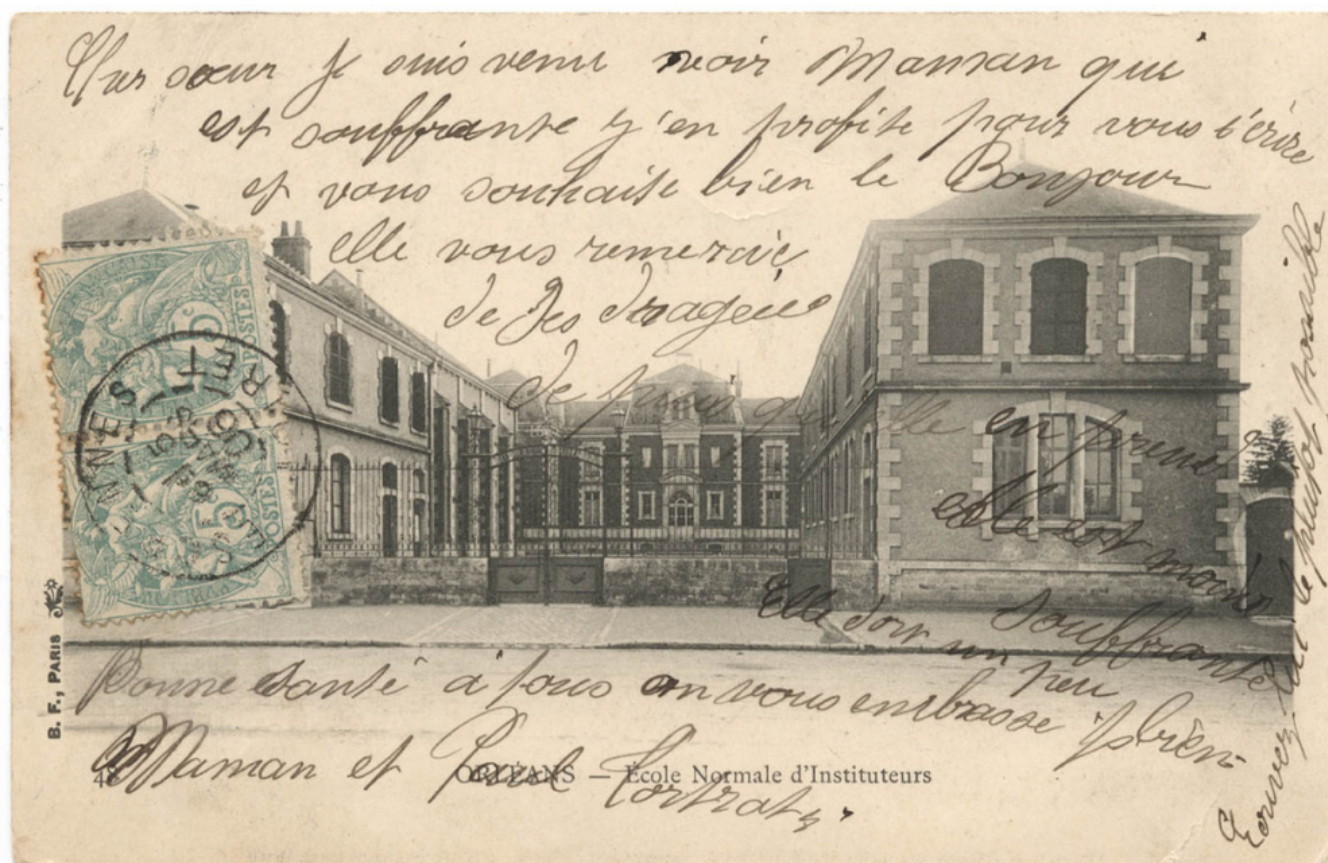 sœur je suis venu voir Maman qui
est souffrante j'en profite pour vous écrire
et vous souhaite bien le Bonjour
elle vous remercie
de dragées
depuis qu'elle en prend
elle est moins
souffrante
Elle dort un peu
Bonne santé à tous on vous embrasse bien
Maman et Paul
le plutot possible
ORLÉANS — École Normale d'Instituteurs
B. F., PARIS
POSTES
5c
POSTES